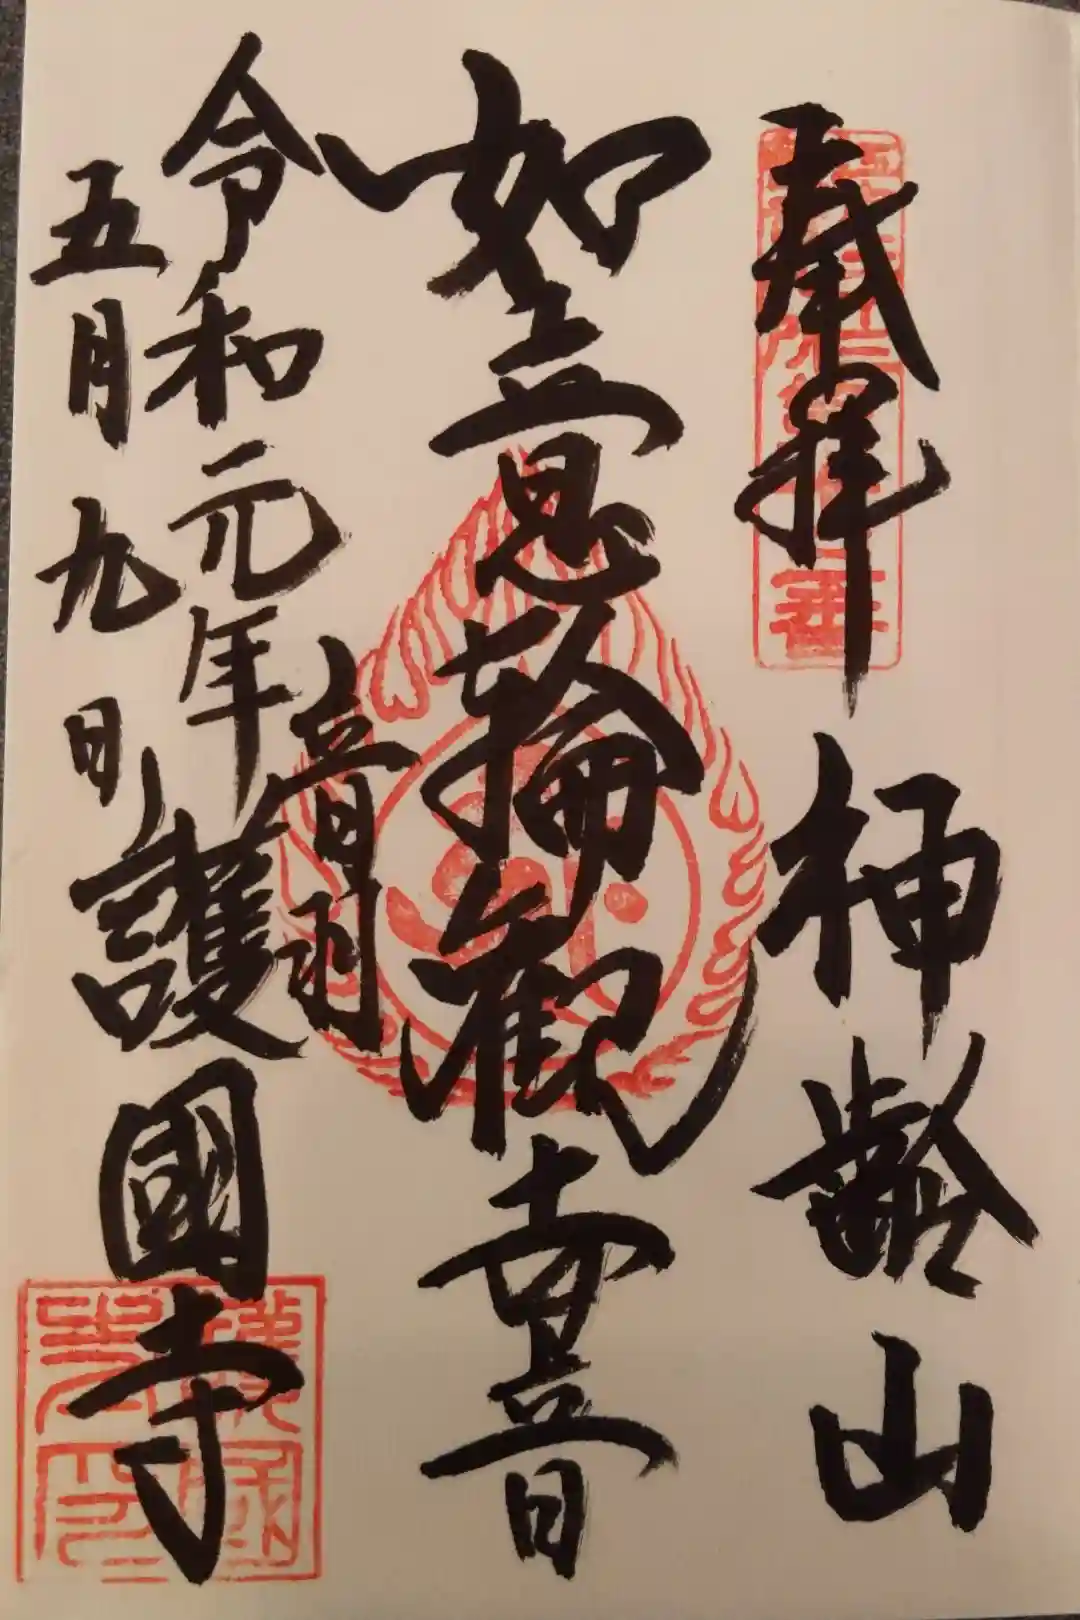 奉拝
神齢山
如意輪觀世音
音羽
護國寺
令和元年
五月九日